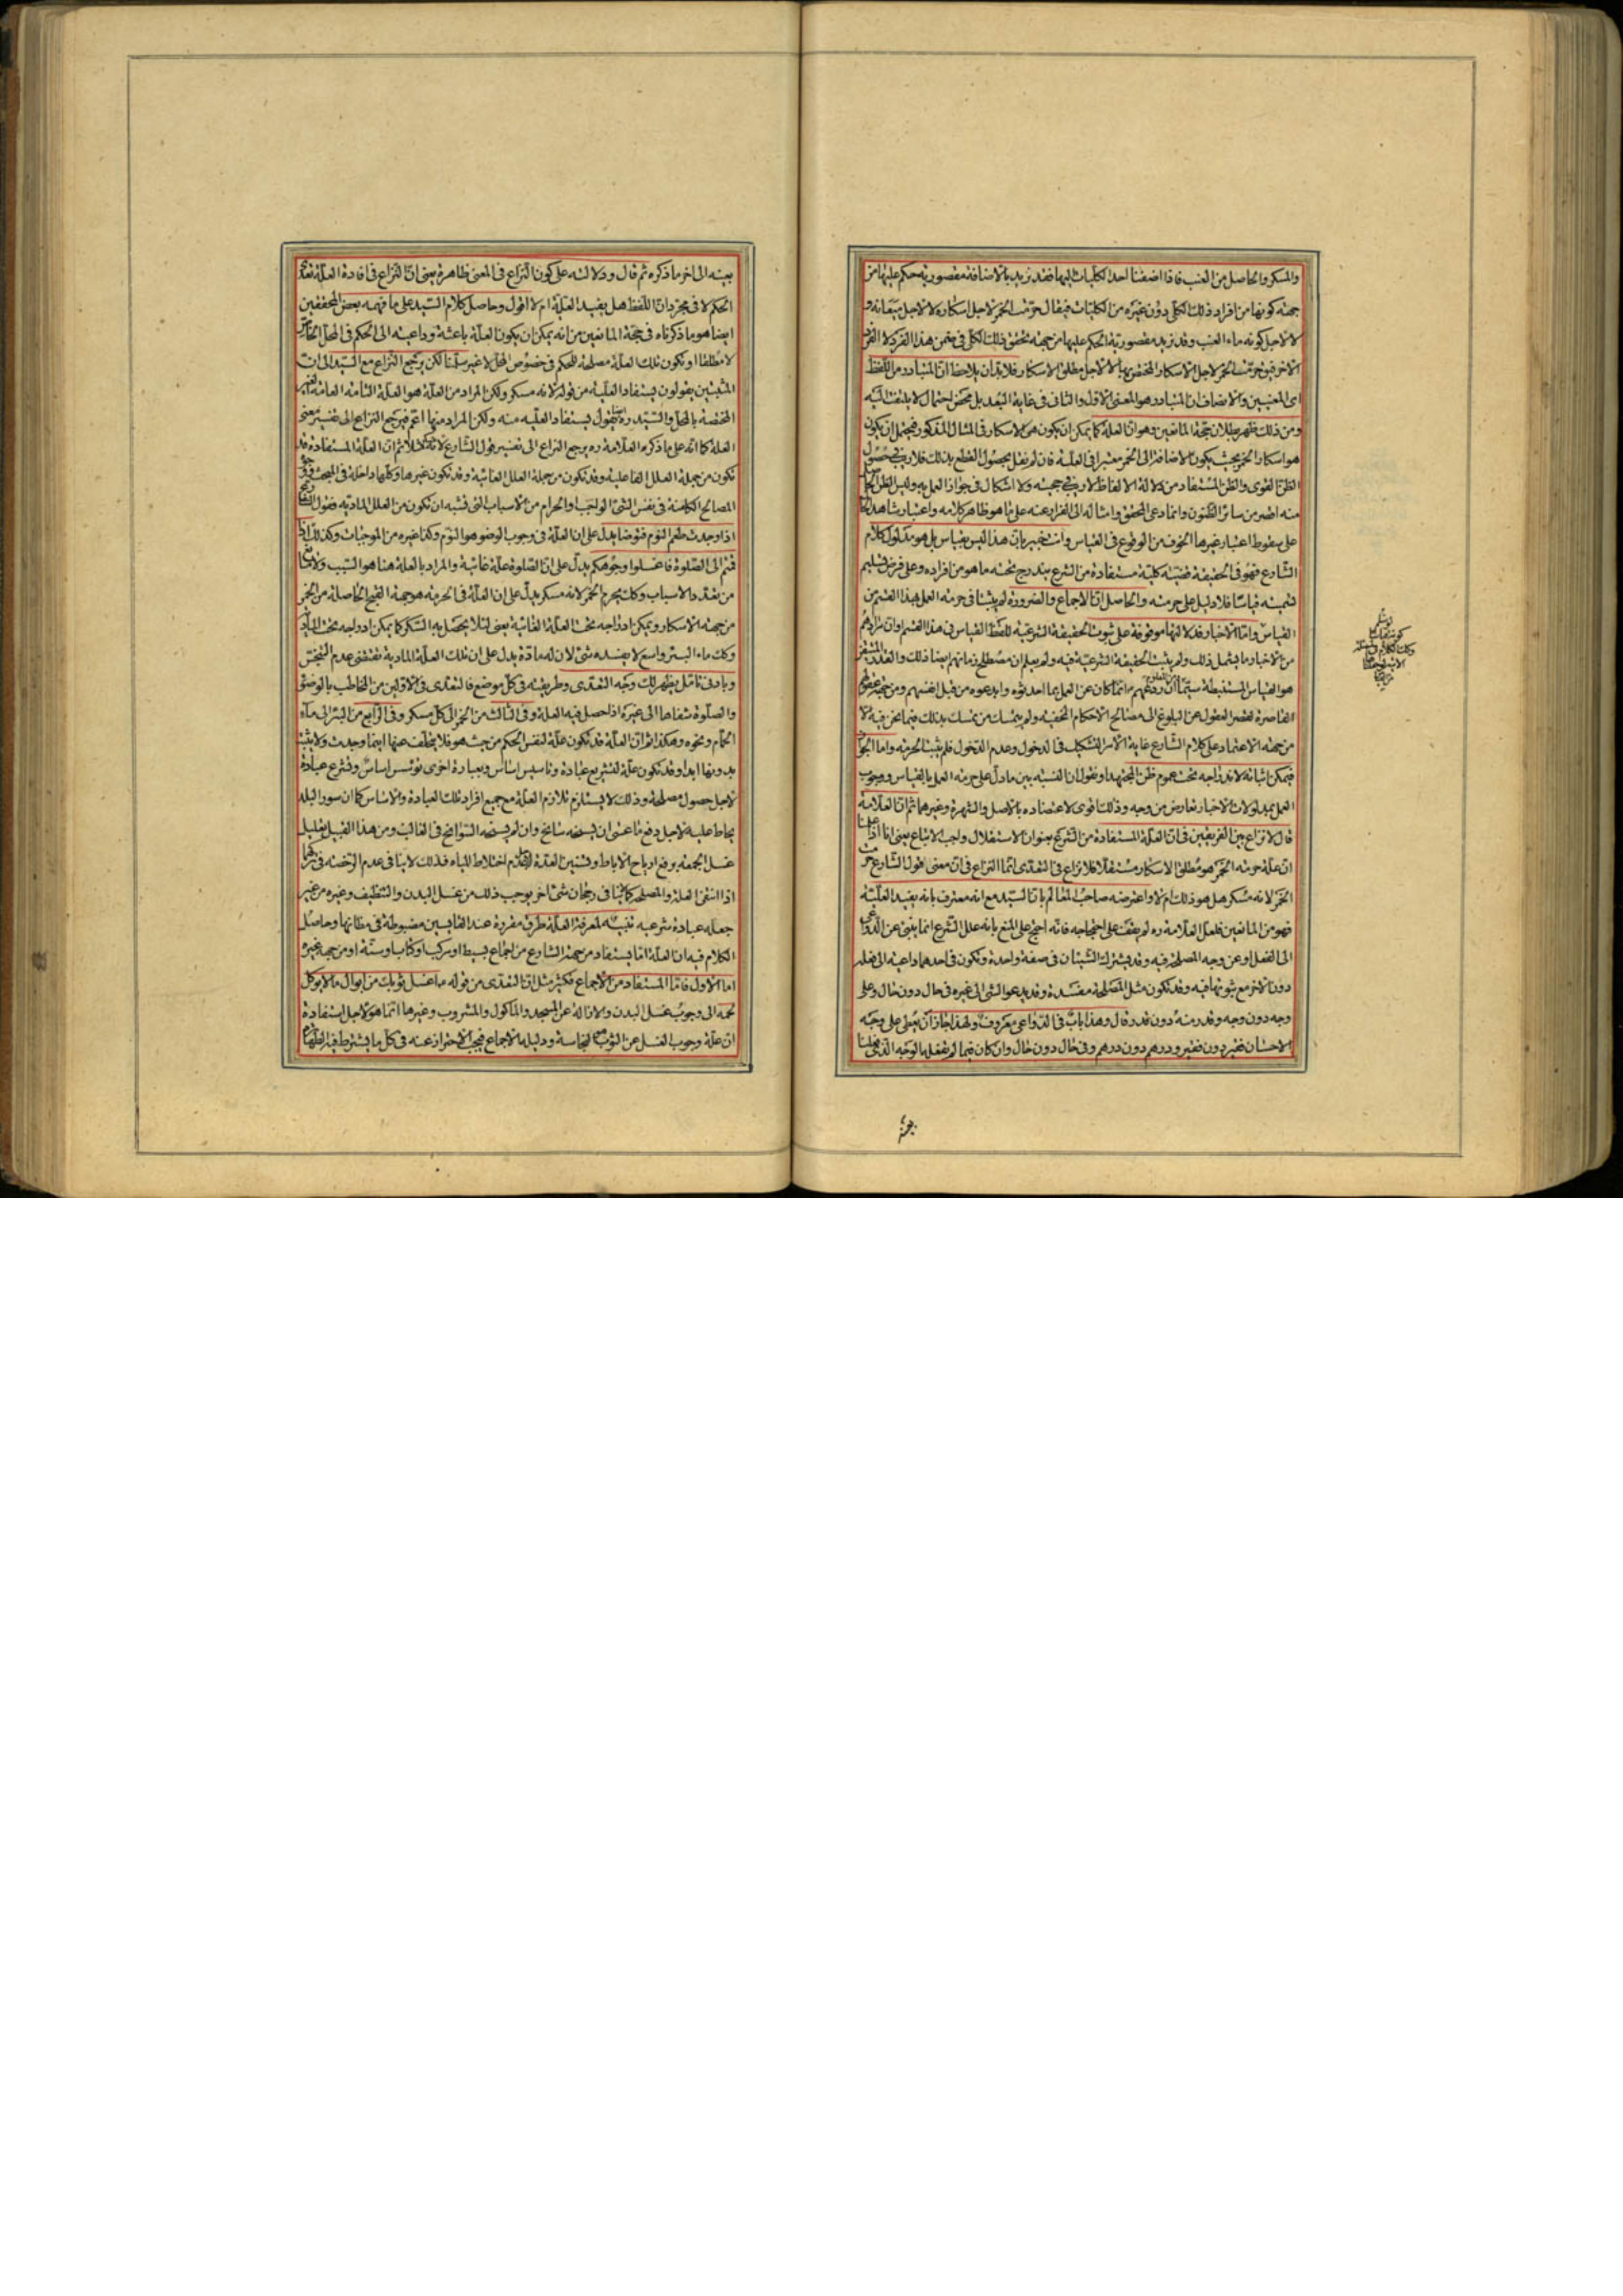 والمسكر والحاصل من العنب فاذا اضفنا احد الكليات اليها فقد نريد بالاضافة مقصورية حكم عليها من
جهة كونها من افراد ذلك الكلى دون غيره من الكليات فيقال حرمت الخمر لاجل اسكاره لا لاجل ميعانه و
لا لاجل كونه ماء العنب وقد نريد مقصورية الحكم عليها من جهة تحقق ذلك الكلى فى ضمن هذا الفرد لا الفرد
الاخر فيق حرمت الخمر لاجل الاسكار المختص بها لا لاجل مطلق الاسكار فلا بد ان يلاحظ ان المتبادر من اللفظ
اى المعنيين والانصاف ان المتبادر هو المعنى الاول والثانى فى غاية البعد بل محض احتمال لا يلتفت اليه
ومن ذلك ظهر بطلان حجة المانعين وهو ان العلة كما يمكن ان يكون هو الاسكار فى المثال المذكور فيحتمل ان يكون
هو اسكار الخمر بحيث يكون الاضافة الى الخمر معتبرا فى العلية فان لم نقل بحصول القطع بذلك فلا ريب فى حصول
الظن القوى والظن المستفاد من دلالة الالفاظ لا ريب فى حجيته ولا اشكال فى جواز العمل به وليس الظن الحاصل
منه اضعف من سائر الظنون وانما دعى المحقق وامثاله الى الفرار عنه على ما هو ظاهر كلامه واعتبار شاهد الحال
على سقوط اعتبار غيرها الخوف من الوقوع فى القياس وانت خبير بان هذا ليس بقياس بل هو مدلول كلام
الشارع فهو فى الحقيقة قضية كلية مستفادة من الشرع يندرج تحته ما هو من افراده وعلى فرض تسليم
تسميته قياسا فلا دليل على حرمته والحاصل ان الاجماع والضرورة لم يثبتا فى حرمة العمل بهذا القسم من
القياس واما الاخبار فدلالتها موقوفة على ثبوت الحقيقة الشرعية للفظ القياس فى هذا القسم وان مرادهم
من الاخبار ما يشمل ذلك ولم يثبت الحقيقة الشرعية فيه ولم يعلم ان مصطلح زمانهم ايضا ذلك والقدر المتيقن
هو القياس المستنبطة سيما ان ردعهم انما كان عن العمل بما احدثوه وابدعوه من قبل انفسهم ومن جهة عقولهم
القاصرة لقصر العقول عن البلوغ الى مصالح الاحكام الخفية ولم يتمسك من تمسك بذلك فيما نحن فيه الا
من جهة الاعتماد على كلام الشارع غاية الامر التشكيك فى الدخول وعدم الدخول فلم يثبت الحرمة واما الجواز
فيمكن اثباته لاندراجه تحت عموم ظن المجتهد او نقول ان النسبة بين ما دل على حرمة العمل بالقياس ووجوب
العمل بمدلولات الاخبار تعارض من وجه وذلك اقوى لاعتضاده بالاصل والشهرة وغيرهما ثم ان العلامة
قال لا نزاع بين الفريقين فى ان العلة المستفادة من الشرع بعنوان الاستقلال واجب الاتباع يعنى انا اذا علمنا
ان علة حرمة الخمر هو مطلق الاسكار مستقلا فلا نزاع فى التعدى انما النزاع فى ان معنى قول الشارع حرمت
الخمر لانه مسكر هل هو ذلك ام لا واعترضه صاحب المعالم بان السيد مع انه معترف بانه يفيد العلية
فهو من المانعين فلعل العلامة ره لم يقف على احتجاجه فانه احتج على المنع بانه علل الشرع انما ينبئ عن الدواعى
الى الفعل او عن وجه المصلحة فيه وقد يشترك الشيئان فى صفة واحدة وتكون فى احدهما داعية الى فعله
دون الاخر مع ثبوتها فيه وقد تكون مثل المصلحة مفسدة وقد يدعو الشئ الى غيره فى حال دون حال وعلى
وجه دون وجه وقدر منه دون قدر قال وهذا باب فى الدواعى معروف ولهذا جاز ان يعطى على وجه
الاحسان فقير دون فقير ودرهم دون درهم وفى حال دون حال وان كان فيما لم نفعله الوجه الذى فعلنا
بعينه الى اخر ما ذكره ثم قال ودلالته على كون النزاع فى المعنى ظاهرة يعنى ان النزاع فى افادة العلة تعدى
الحكم لا فى مجرد ان اللفظ هل يفيد العلية ام لا اقول وحاصل كلام السيد على ما فهمه بعض المحققين
ايضا هو ما ذكرناه فى حجة المانعين من انه يمكن ان يكون العلة باعثة وداعية الى الحكم فى المحل الخاص
لا مطلقا او تكون تلك العلة مصلحة للحكم فى خصوص المحل لا غير سلمنا لكن يرجع النزاع مع السيد الى ان
المثبتين يقولون يستفاد العلية من قوله لانه مسكر ولكن المراد من العلة هو العلة التامة العامة الغير
المختصة بالمحل والسيد ره ايضا يقول يستفاد العلية منه ولكن المراد منها اعم فيرجع النزاع الى تفسير معنى
العلة كما انه على ما ذكره العلامة ره يرجع النزاع الى تفسير قول الشارع لانه مسكر مثلا ثم ان العلة المستفادة قد
تكون من جملة العلل الفاعلية وقد تكون من جملة العلل الغائية وقد تكون غيرها وكلها داخلة فى المبحث
المصالح الكامنة فى نفس الشئ الواجب او الحرام من الاسباب التى تشبه ان تكون من العلل المادية فقول الشارع
اذا وجدت طعم النوم فتوضا يدل على ان العلة فى وجوب الوضوء هو النوم وكذا غيره من الموجبات وكذلك اذا
قمتم الى الصلوة فاغسلوا وجوهكم يدل على ان الصلوة علة غائية والمراد بالعلة هنا هو السبب ولا مانع
من تعدد الاسباب وكك يحرم الخمر لانه مسكر يدل على ان العلة فى الحرمة هو جهة القبح الحاصلة من الخمر
من جهة الاسكار ويمكن ادراجه تحت العلة الغائية يعنى لئلا يحصل به السكر كما يمكن ادراجه تحت المادية
وكك ماء البئر واسع لا يفسده شئ لان له مادة يدل على ان تلك العلة المادية تقتضى عدم التنجس
وبادنى تامل يظهر لك وجه التعدى وطريقته فى كل موضع فالتعدى فى الاولين من المخاطب بالوضوء
والصلوة شفاها الى غيره اذا حصل فيه العلة وفى الثالث من الخمر الى كل مسكر وفى الرابع من البئر الى ماء
الحمام ونحوه وهكذا ثم ان العلة قد تكون علة لنفس الحكم من حيث هو فلا يتخلف عنها اينما وجدت ولا يثبت
بدونها ابدا وقد تكون علة لتشريع عبادة وتاسيس اساس وبعبارة اخرى نؤسس اساس ونشرع عبادة
لاجل حصول مصلحة وذلك لا يستلزم تلازم العلة مع جميع افراد تلك العبادة والاساس كما ان سور البلد
يحاط عليه لاجل دفع ما عسى ان يسنحه سانح وان لم يسنحه السوانح فى الغالب ومن هذا القبيل تعليل
غسل الجمعة برفع ارياح الاباط وتسنين العدة لعدم اختلاط المياه فذلك لا ينافى عدم الرخصة فى تركهما
اذا انتفى العلة والمصلحة كما لا ينافى رجحان شئ اخر يوجب ذلك من غسل البدن والتنظيف وغيره من غير
جعله عبادة شرعية تنبيه لمعرفة العلة طرق مقررة عند القايسين مضبوطة فى مظانها وحاصل
الكلام فيه ان العلة اما يستفاد من جهة الشارع من اجماع بسيط او مركب او كتاب او سنة او من جهة غيره
اما الاول فاما المستفاد من الاجماع فكثير مثل ان التعدى من قوله ع اغسل ثوبك من ابوال ما لا يؤكل
لحمه الى وجوب غسل البدن والازالة عن المسجد والماكول والمشروب وغيرها انما هو لاجل استفادة
ان علة وجوب الغسل عن الثوب هى النجاسة ودليله الاجماع فيجب الاحتراز عنه فى كل ما يشترط فيه الطهارة